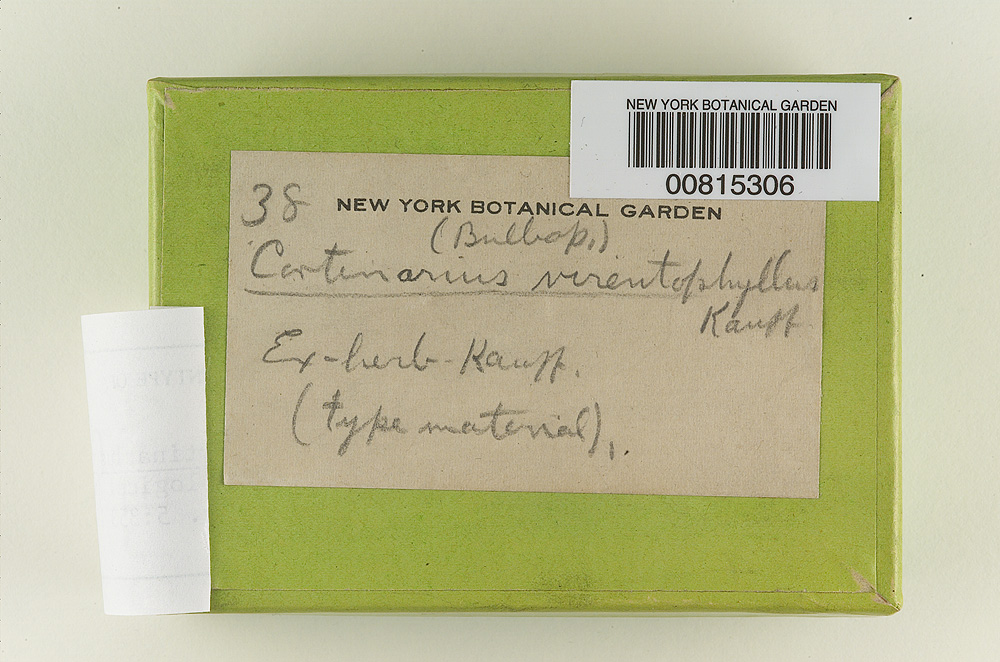 NEW YORK BOTANICAL GARDEN
00815306
38 NEW YORK BOTANICAL GARDEN
(Bulbop.)
Cortinarius virentophyllus
Kauff.
Ex-herb-Kauff.
(type material).